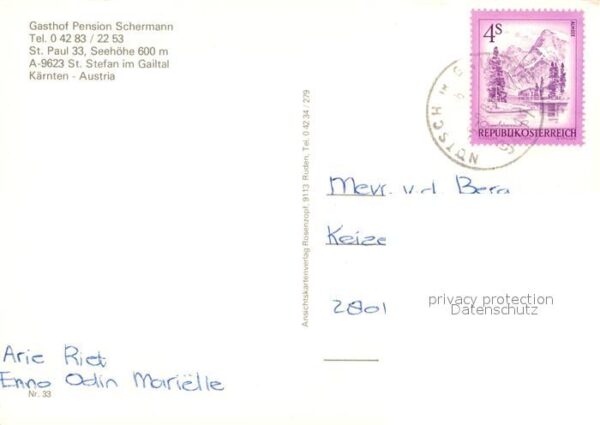 Gasthof Pension Schermann
Tel. 0 42 83 / 22 53
St. Paul 33, Seehöhe 600 m
A-9623 St. Stefan im Gailtal
Kärnten - Austria
4S
ALMSEE
REPUBLIK ÖSTERREICH
Ansichtskartenverlag Rosenzopf, 9113 Ruden, Tel. 0 42 34 / 279
Mevr. v.d. Berg
Keize
2801
privacy protection
Datenschutz
Arie Riet
Enno Odin Mariëlle
Nr. 33